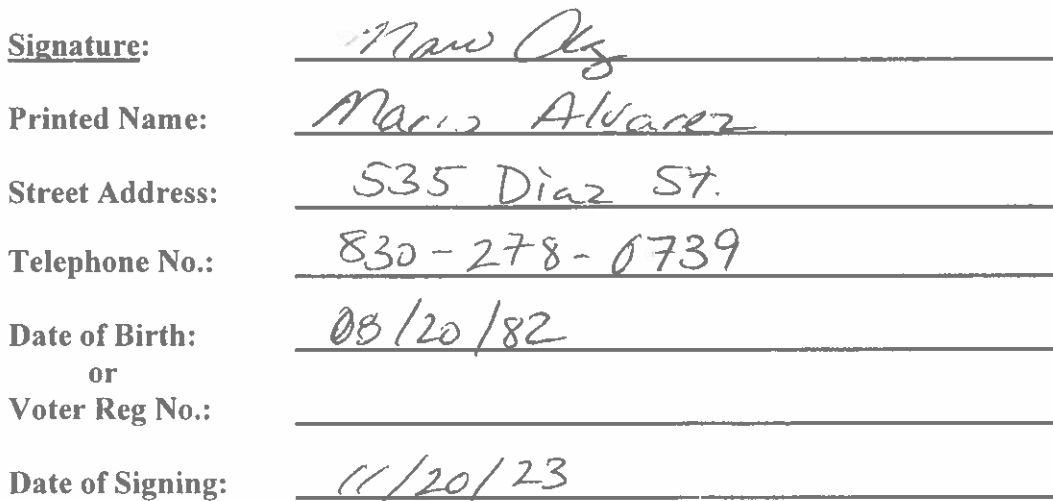 Signature:
Printed Name: Mario Alvarez
Street Address: 535 Diaz St.
Telephone No.: 830-278-0739
Date of Birth: 08/20/82
or
Voter Reg No.:
Date of Signing: 11/20/23